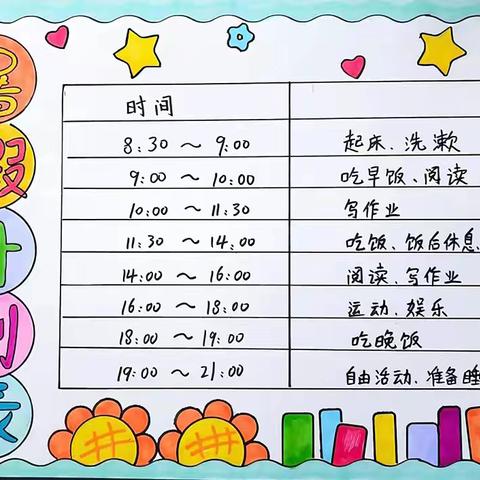 暑假计划表
时间
8:30 ~ 9:00 起床、洗漱
9:00 ~ 10:00 吃早饭、阅读
10:00 ~ 11:30 写作业
11:30 ~ 14:00 吃饭、饭后休息
14:00 ~ 16:00 阅读、写作业
16:00 ~ 18:00 运动、娱乐
18:00 ~ 19:00 吃晚饭
19:00 ~ 21:00 自由活动、准备睡